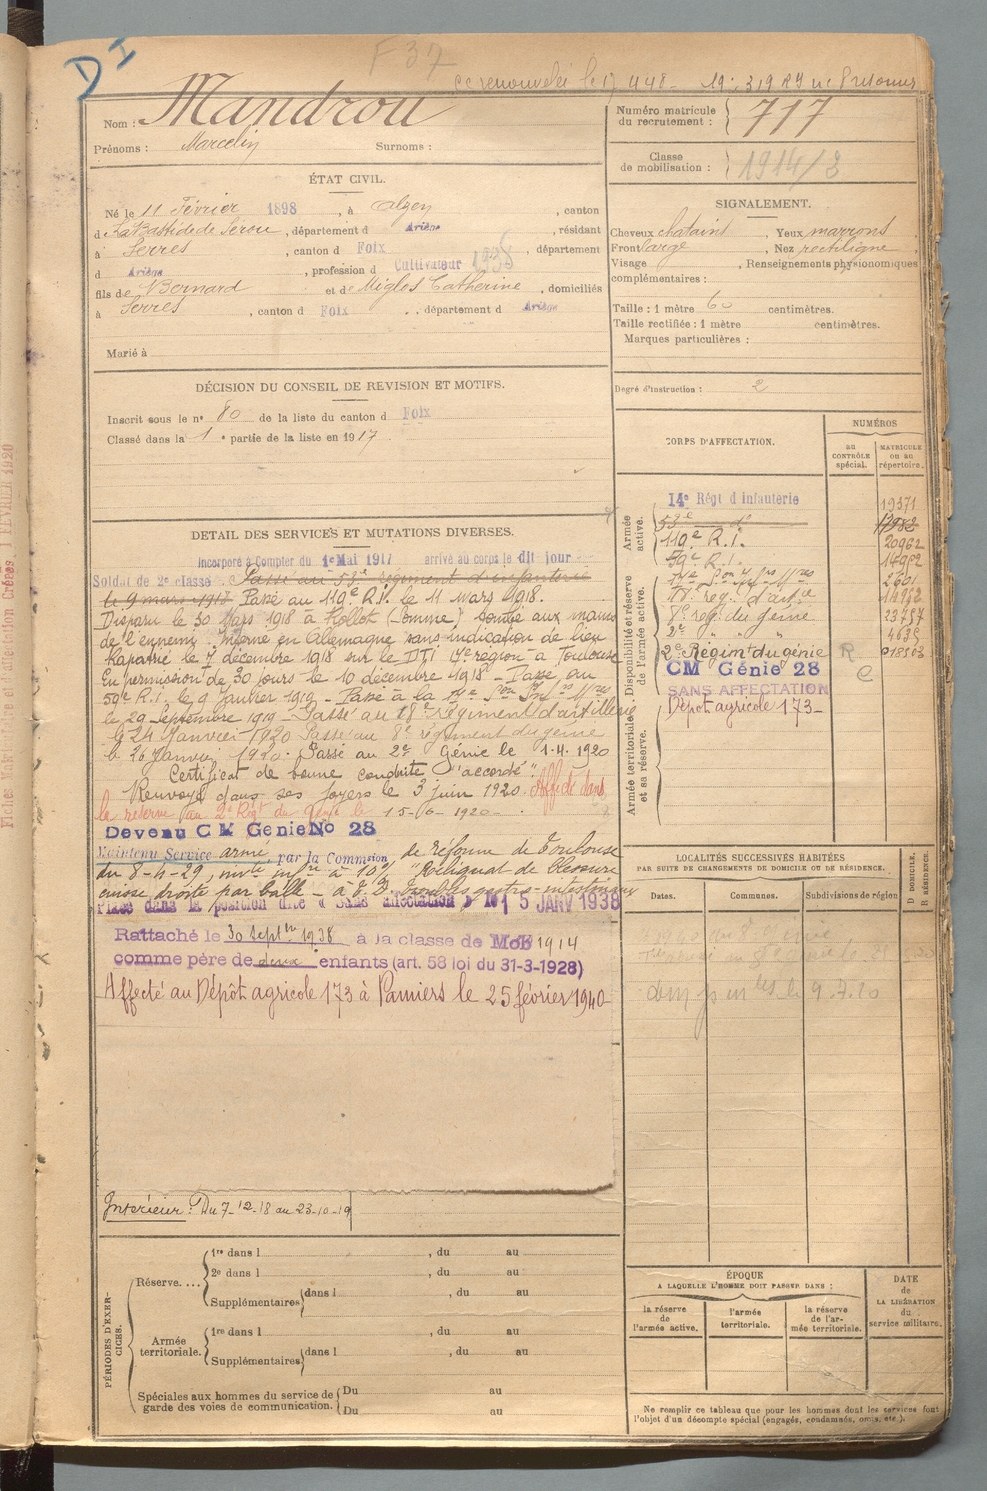 D I
F 37
Nom : Mandrou
Prénoms : Marcelin Surnoms :
Numéro matricule du recrutement : 717
Classe de mobilisation : 1914/3
ÉTAT CIVIL.
Né le 11 Février 1898, à Alzen, canton
d La Bastide de Sérou, département d Ariège, résidant
à Serres, canton d Foix, département
d Ariège, profession d Cultivateur
fils de Bernard et de Miglos Catherine, domiciliés
à Serres, canton d Foix, département d Ariège
Marié à
SIGNALEMENT.
Cheveux chatains, Yeux marrons
Front large, Nez rectiligne
Visage , Renseignements physionomiques
complémentaires :
Taille : 1 mètre 60 centimètres.
Taille rectifiée : 1 mètre centimètres.
Marques particulières :
Degré d'instruction : 2
DÉCISION DU CONSEIL DE REVISION ET MOTIFS.
Inscrit sous le n° 80 de la liste du canton d Foix
Classé dans la 1e partie de la liste en 1917
DETAIL DES SERVICES ET MUTATIONS DIVERSES.
Incorporé à Compter du 1e Mai 1917 arrivé au corps le dit jour
Soldat de 2e classe Passé au 53e régiment d'infanterie
le 9 mars 1918 Passé au 119e R.I. le 11 Mars 1918.
Disparu le 30 Mars 1918 à Rollot (Somme) tombé aux mains
de l'ennemi. Interné en Allemagne sans indication de lieu
Rapatrié le 7 décembre 1918 sur le DTI 17e région à Toulouse
En permission de 30 jours le 10 décembre 1918 - Passé au
59e R.I. le 9 Janvier 1919 - Passé à la
le 29 Septembre 1919 - Passé au 18e Régiment d'artillerie
le 24 Janvier 1920 Passé au 8e régiment du génie
le 26 Janvier 1920. Passé au 2e Génie le 1.4.1920
Certificat de bonne conduite "accordé".
Renvoyé dans ses foyers le 3 juin 1920. Affecté dans
la réserve au 2e Régt du Génie le 15-6-1920
Devenu C M Génie No 28
Maintenu Service armé, par la Commsion de réforme de Toulouse
du 8-4-29, invte infre à 10% "Reliquat de blessure
cuisse droite par balle - a E.I. Troubles gastro-intestinaux
Placé dans la position dite « Sans affectation » le 15 JANV 1938
Rattaché le 30 Septre 1938 à la classe de Mob 1914
comme père de deux enfants (art. 58 loi du 31-3-1928)
Affecté au Dépôt agricole 173 à Pamiers le 25 février 1940
Intérieur : Du 7-12-18 au 23-10-19
CORPS D'AFFECTATION.
NUMÉROS
au CONTRÔLE spécial.
MATRICULE ou au répertoire.
Armée active.
14e Régt d'Infanterie 19371
53e d°
119e R.I. 20962
59e R.I.
Disponibilité et réserve de l'armée active.
18e rég. d'art.ie
8e rég. du génie 23757
2e " " " 4635
2e Régimt du génie R
CM Génie 28 C
SANS AFFECTATION
Dépôt agricole 173
Armée territoriale et sa réserve.
LOCALITÉS SUCCESSIVES HABITÉES
PAR SUITE DE CHANGEMENTS DE DOMICILE OU DE RÉSIDENCE.
Dates. Communes. Subdivisions de région D. DOMICILE. R. RÉSIDENCE.
PÉRIODES D'EXERCICES.
Réserve.... 1re dans l , du au
2e dans l , du au
Supplémentaires dans l , du au
Armée territoriale. 1re dans l , du au
Supplémentaires dans l , du au
Spéciales aux hommes du service de garde des voies de communication. Du au
Du au
ÉPOQUE
A LAQUELLE L'HOMME DOIT PASSER DANS :
la réserve de l'armée active.
l'armée territoriale.
la réserve de l'armée territoriale.
DATE de LA LIBÉRATION du service militaire.
Ne remplir ce tableau que pour les hommes dont les services font
l'objet d'un décompte spécial (engagés, condamnés, omis, etc.).